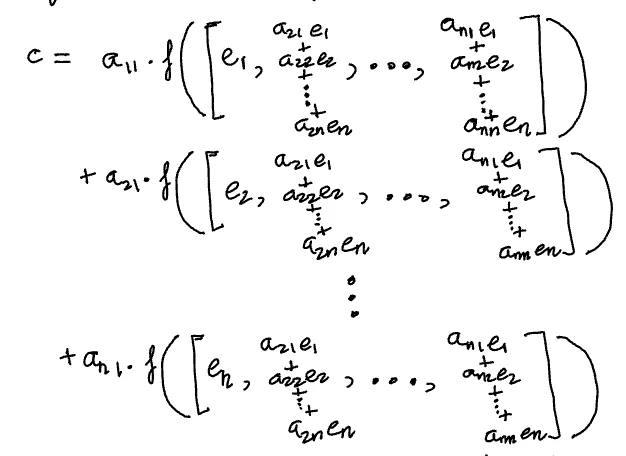 c = a₁₁ · f([e₁, a₂₁e₁ + a₂₂e₂ + ⋮ + a₂ₙeₙ, ..., aₙ₁e₁ + aₙ₂e₂ + ⋮ + aₙₙeₙ])
+ a₂₁ · f([e₂, a₂₁e₁ + a₂₂e₂ + ⋮ + a₂ₙeₙ, ..., aₙ₁e₁ + aₙ₂e₂ + ⋮ + aₙₙeₙ])
⋮
+ aₙ₁ · f([eₙ, a₂₁e₁ + a₂₂e₂ + ⋮ + a₂ₙeₙ, ..., aₙ₁e₁ + aₙ₂e₂ + ⋮ + aₙₙeₙ])